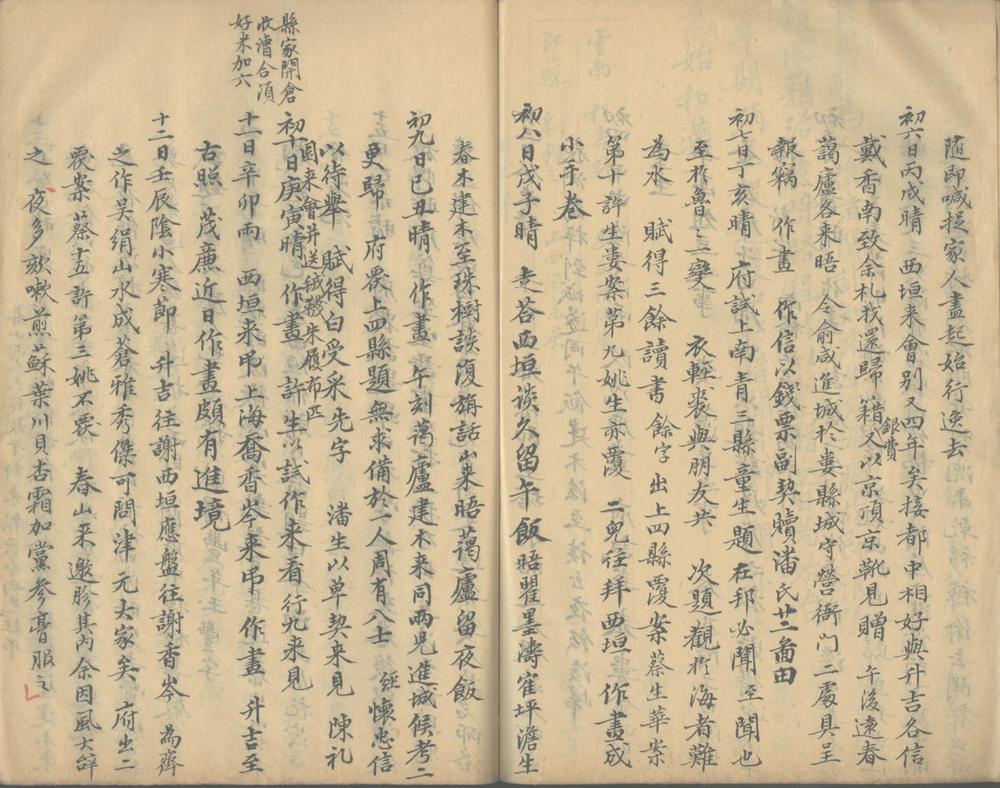 隨即喊捉家人盡起始行逸去
初六日丙戌晴 西垣来會别又四年矣接都中相好與升吉各信
戴香南致余札我還歸籍銀費又以京頂京靴見贈 午後遠春
藹廬各来晤 令俞咸進城於婁縣城守營衙門二處具呈
報竊 作畫 作信以錢票副契贖潘氏廿二亩田
初七日丁亥晴 府試上南青三縣童生題 在邦必聞至聞也
至於魯之變 衣輕裘與朋友共 次題觀於海者難
為水 賦得三餘讀書餘字 出上四縣覆案蔡生華案
第十許生婁案第九姚生亦覆 二兒往拜西垣 作畫成
小手卷
初八日戊子晴 走荅西垣谈久留午飯晤翟墨濤崔坪澹生
春木建木至珠樹談復旃話山来晤藹廬留夜飯
初九日己丑晴作畫 午刻藹廬建木来同两兒進城候考二
更歸 府覆上四縣題 無求備於一人周有八士 經懷忠信
以待舉 賦得白受采先字 潘生以单契来見 陳礼
園来會并送絨韈朱履布匹
初十日庚寅晴 作畫 許生以試作来看行九来見
縣家開倉
收漕合湏
好米加六
十一日辛卯雨 西垣来吊上海喬香岑来吊作畫 升吉至
古照 茂亷近日作畫頗有進境
十二日壬辰陰小寒節 升吉往謝西垣應盤往謝香岑 為齊
之作吴绢山水成蒼雅秀傑可問津元大家矣 府出二
覆案蔡十五許第三姚不覆 春山来邀胗其内余因風大辞
之 夜多欬嗽煎蘇葉川貝杏霜加黨参膏服之